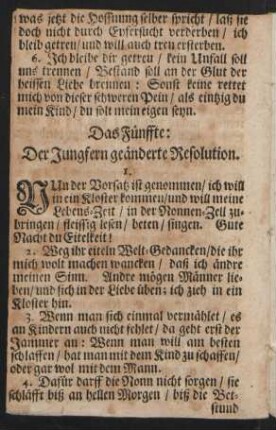 was jetzt die Hoffnung selber spricht / laß sie
doch nicht durch Eyfersucht verderben / ich
bleib getreu / und will auch treu ersterben.
6. Ich bleibe dir getreu / kein Unfall soll
uns trennen / Bestand soll an der Glut der
heissen Liebe brennen: Sonst keine rettet
mich von dieser schweren Pein / als eintzig du
mein Kind / du solt mein eigen seyn.
Das Fünffte:
Der Jungfern geänderte Resolution.
1.
NUn der Vorsatz ist genommen / ich will
in ein Kloster kommen / und will meine
Lebens-Zeit / in der Nonnen-Zell zu-
bringen / fleissig lesen / beten / singen. Gute
Nacht du Eitelkeit!
2. Weg ihr eiteln Welt-Gedancken / die ihr
mich wolt machen wancken / daß ich ändre
meinen Sinn. Andre mögen Männer lie-
ben / und sich in der Liebe üben: ich zieh in ein
Kloster hin.
3. Wenn man sich einmal vermählet / es
an Kindern auch nicht fehlet / da geht erst der
Jammer an: Wenn man will am besten
schlaffen / hat man mit dem Kind zu schaffen /
oder gar wol mit dem Mann.
4. Dafür darff die Nonn nicht sorgen / sie
schläfft biß an hellen Morgen / biß die Bet-
stund